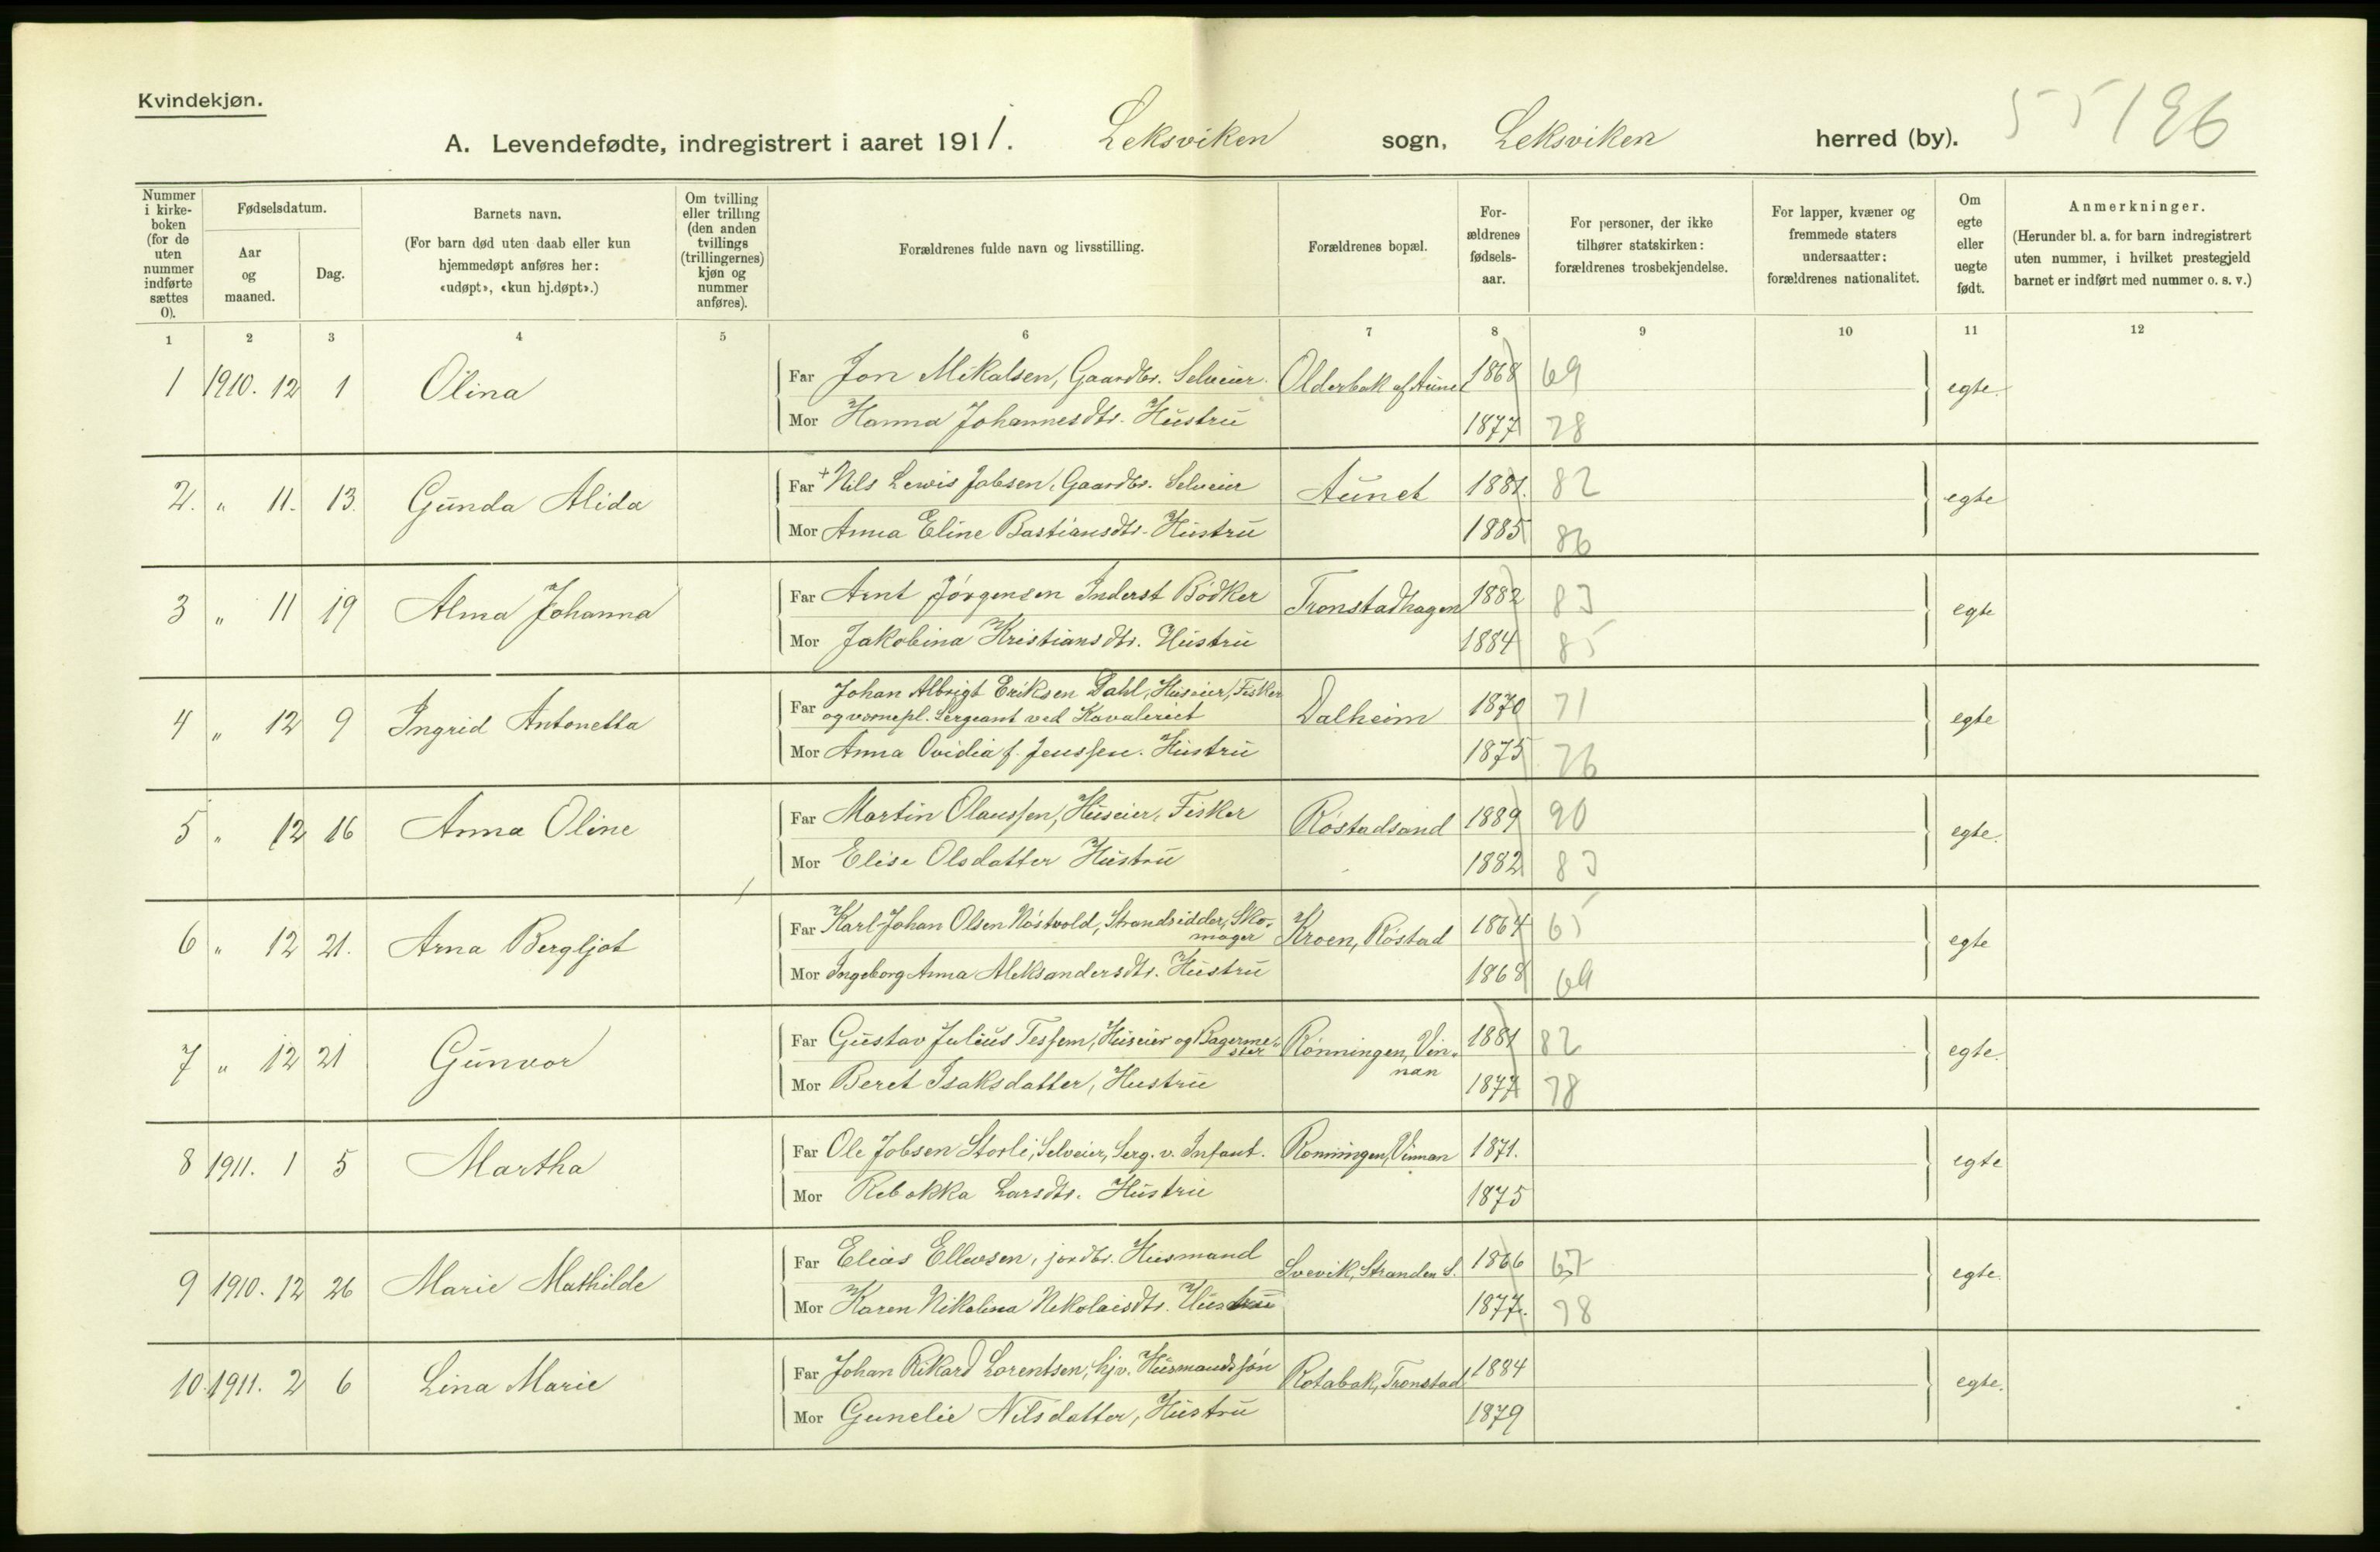 Kvindekjøn.
A. Levendefødte, indregistrert i aaret 1911. Leksviken sogn, Leksviken herred (by). 55196
Nummer i kirke-boken (for de uten nummer indførte sættes 0).
Fødselsdatum.
Aar og maaned.
Dag.
Barnets navn.
(For barn død uten daab eller kun hjemmedøpt anføres her: «udøpt», «kun hj.døpt».)
Om tvilling eller trilling (den anden tvillings (trillingernes) kjøn og nummer anføres).
Forældrenes fulde navn og livsstilling.
Forældrenes bopæl.
For-ældrenes fødsels-aar.
For personer, der ikke tilhører statskirken: forældrenes trosbekjendelse.
For lapper, kvæner og fremmede staters undersaatter: forældrenes nationalitet.
Om egte eller uegte født.
Anmerkninger.
(Herunder bl. a. for barn indregistrert uten nummer, i hvilket prestegjeld barnet er indført med nummer o. s. v.)
1 2 3 4 5 6 7 8 9 10 11 12
1 1910. 12 1 Olina Far Jon Mikalsen, Gaardbr. Selveier. Olderbak af Aunet 1868 69 egte.
Mor Hanna Johannesdtr. Hustru 1877 78
2. " 11. 13. Gunda Alida Far + Nils Lewis Jobsen, Gaardbr. Selveier Aunet 1881. 82 egte
Mor Anna Eline Bastiansdtr. Hustru 1885 86
3 " 11 19 Alma Johanna Far Arnt Jørgensen Inderst Bødker Tronstadhagen 1882 83 egte
Mor Jakobina Kristiansdtr. Hustru 1884 85
4 " 12 9 Ingrid Antonetta Far Johan Albrigt Eriksen Dahl, Huseier, Fisker
og vernepl. Sergeant ved Kavaleriet Dalheim 1870 71 egte
Mor Anna Ovidia f. Jenssen. Hustru 1875 76
5 " 12 16 Anna Oline Far Martin Olaussen, Huseier, Fisker Røstadsand 1889 90 egte.
Mor Elise Olsdatter Hustru 1882 83
6 " 12 21. Arna Bergljot Far Karl Johan Olsen Nøstvold, Strandsidder, Sko-
mager Kroen, Røstad 1864 65 egte
Mor Ingeborg Anna Aleksandersdtr. Hustru 1868 69
7 " 12 21 Gunvor Far Gustav Julius Tessem, Huseier og Bagerme-
ster Rønningen, Vin-
nan 1881 82 egte.
Mor Beret Isaksdatter, Hustru 1877 78
8 1911. 1 5 Martha Far Ole Jobsen Storli, Selveier, Serg. v. Infant. Rønningen, Vinnan 1871. egte
Mor Rebekka Larsdtr. Hustru 1875
9 1910. 12 26 Marie Mathilde Far Elias Ellevsen, jordbr. Husmand Svevik, Stranden S. 1866 67 egte.
Mor Karen Nikolina Nikolaisdtr. Hustru 1877. 78
10. 1911. 2 6 Lina Marie Far Johan Rikard Lorentsen, hjv. Husmandssøn Rotabak, Tronstad 1884 egte.
Mor Gunelie Nilsdatter, Hustru 1879